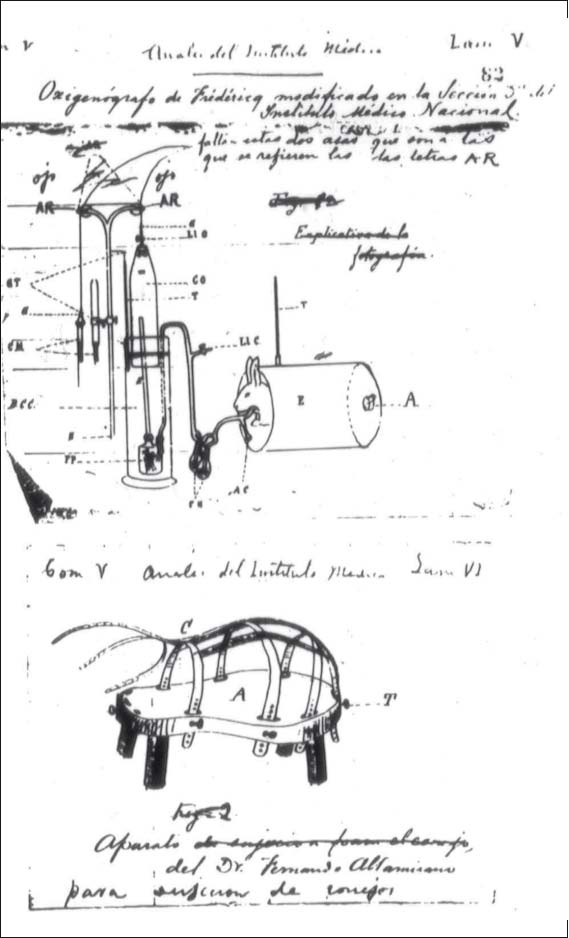 m V Anales del Instituto Médico Lam V
82
Oxigenógrafo de Fréderícq modificado en la Sección 3ª del
Instituto Médico Nacional.
faltan estas dos asas que son a las
que se refieren las las letras AR
ojo ojo
AR AR
Explicativa de la
fotografía.
G
LI O
GT
CO
T
T
G
CM
LI C
E
A
C
B.C.C.
B
FP
PH
A C
Tom V Anales del Instituto Medico Lam VI
C
A
T
Fig. 2
Aparato de sujecion para el conejo,
del Dr. Fernando Altamirano
para sujecion de conejos